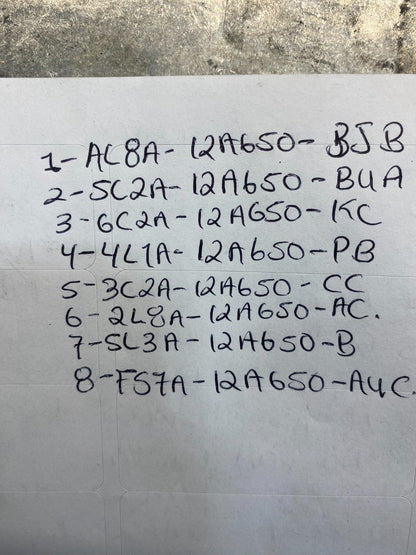 1-AL8A-12A650-BJB
2-5C2A-12A650-BUA
3-6C2A-12A650-KC
4-4L1A-12A650-PB
5-3C2A-12A650-CC
6-2L8A-12A650-AC.
7-5L3A-12A650-B
8-F57A-12A650-AUC.